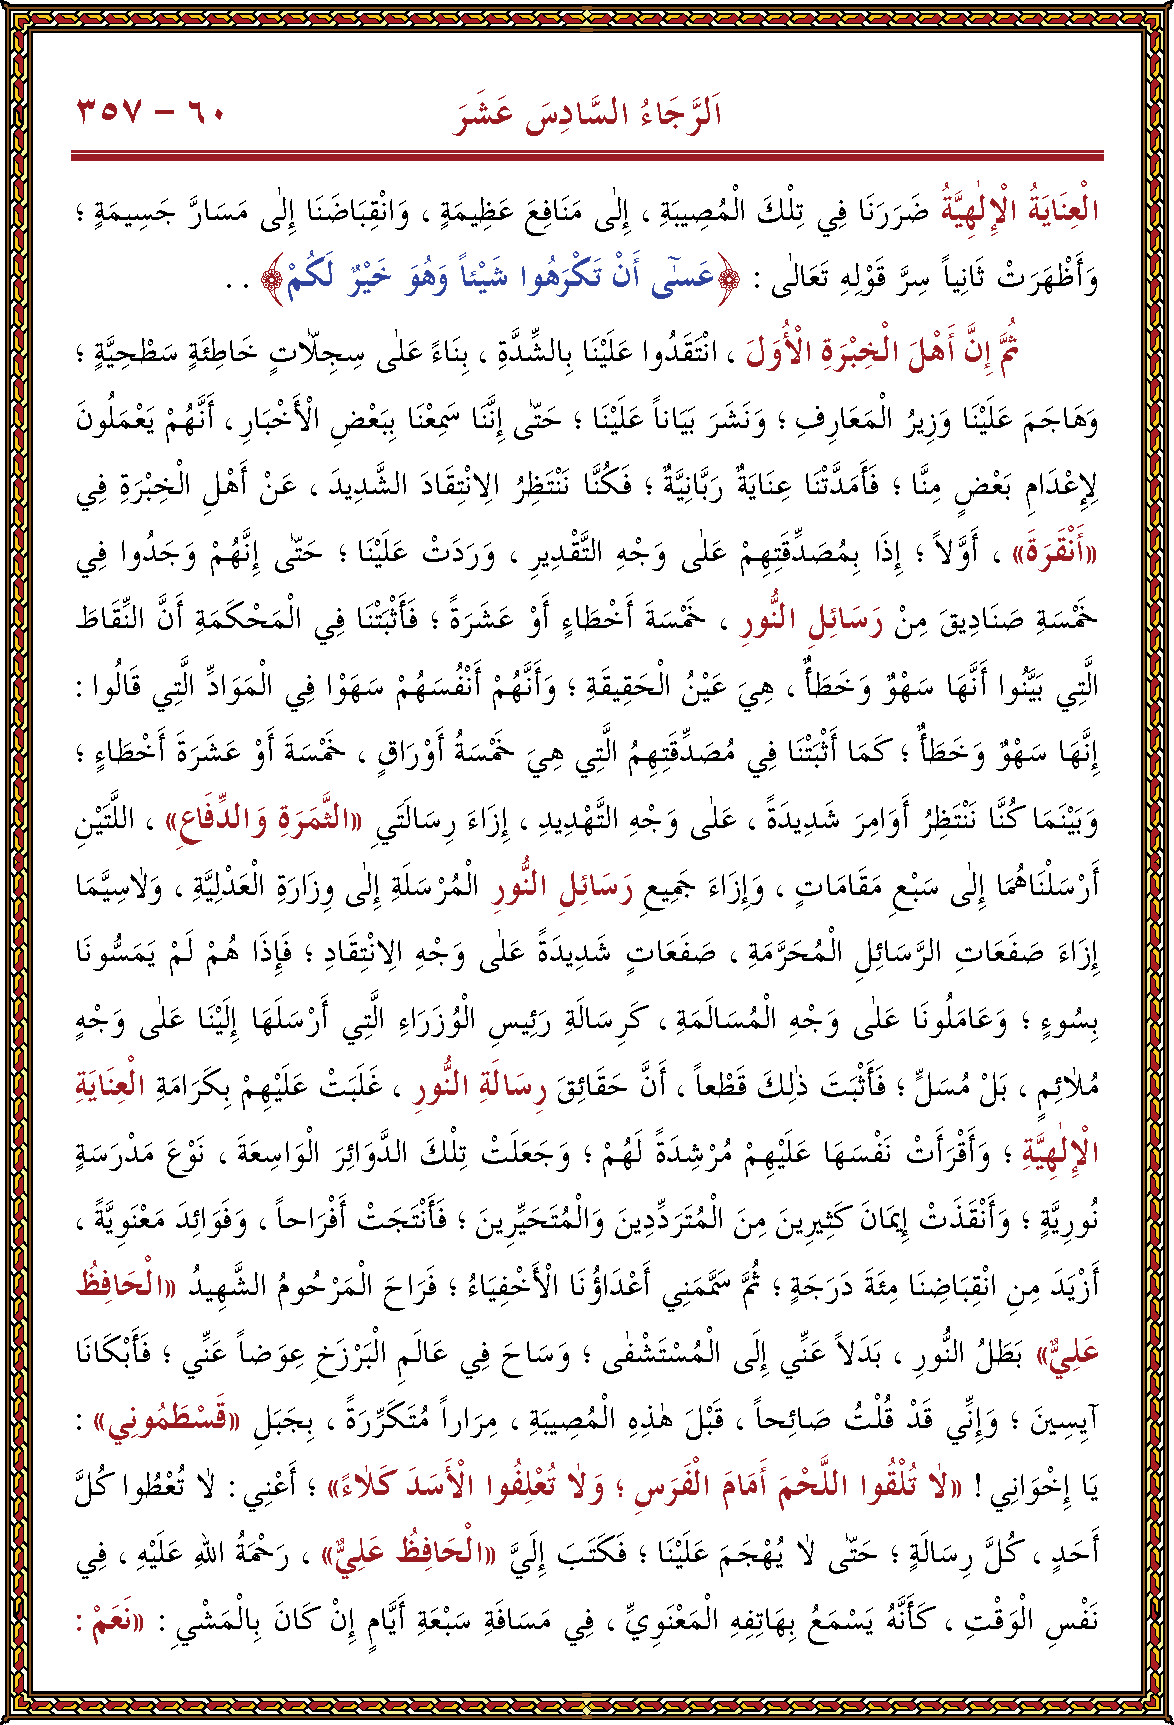 اَلرَّجَاءُ السَّادِسَ عَشَرَ ٦٠ – ٣٥٧
الْعِنَايَةُ الْاِلٰهِيَّةُ ضَرَرَنَا فِي تِلْكَ الْمُصِيبَةِ ، إِلٰى مَنَافِعَ عَظِيمَةٍ ، وَانْقِبَاضَنَا إِلٰى مَسَارَّ جَسِيمَةٍ ؛
وَأَظْهَرَتْ ثَانِياً سِرَّ قَوْلِهِ تَعَالٰى : ﴿عَسٰٓى أَنْ تَكْرَهُوا شَيْئاً وَهُوَ خَيْرٌ لَكُمْ﴾ . .
ثُمَّ إِنَّ أَهْلَ الْخِبْرَةِ الْأُوَلَ ، انْتَقَدُوا عَلَيْنَا بِالشِّدَّةِ ، بِنَاءً عَلٰى سِجِلّاَتٍ خَاطِئَةٍ سَطْحِيَّةٍ ؛
وَهَاجَمَ عَلَيْنَا وَزِيرُ الْمَعَارِفِ ؛ وَنَشَرَ بَيَاناً عَلَيْنَا ؛ حَتّٰى إِنَّنَا سَمِعْنَا بِبَعْضِ الْأَخْبَارِ ، أَنَّهُمْ يَعْمَلُونَ
لِإِعْدَامِ بَعْضٍ مِنَّا ؛ فَأَمَدَّتْنَا عِنَايَةٌ رَبَّانِيَّةٌ ؛ فَكُنَّا نَنْتَظِرُ الِانْتِقَادَ الشَّدِيدَ ، عَنْ أَهْلِ الْخِبْرَةِ فِي
«أَنْقَرَةَ» ، أَوَّلاً ؛ إِذَا بِمُصَدِّقَتِهِمْ عَلٰى وَجْهِ التَّقْدِيرِ ، وَرَدَتْ عَلَيْنَا ؛ حَتّٰى إِنَّهُمْ وَجَدُوا فِي
خَمْسَةِ صَنَادِيقَ مِنْ رَسَائِلِ النُّورِ ، خَمْسَةَ أَخْطَاءٍ أَوْ عَشَرَةً ؛ فَأَثْبَتْنَا فِي الْمَحْكَمَةِ أَنَّ النِّقَاطَ
الَّتِي بَيَّنُوا أَنَّهَا سَهْوٌ وَخَطَأٌ ، هِيَ عَيْنُ الْحَقِيقَةِ ؛ وَأَنَّهُمْ أَنْفُسَهُمْ سَهَوْا فِي الْمَوَادِّ الَّتِي قَالُوا :
إِنَّهَا سَهْوٌ وَخَطَأٌ ؛ كَمَا أَثْبَتْنَا فِي مُصَدِّقَتِهِمُ الَّتِي هِيَ خَمْسَةُ أَوْرَاقٍ ، خَمْسَةَ أَوْ عَشَرَةَ أَخْطَاءٍ ؛
وَبَيْنَمَا كُنَّا نَنْتَظِرُ أَوَامِرَ شَدِيدَةً ، عَلٰى وَجْهِ التَّهْدِيدِ ، إِزَاءَ رِسَالَتَيِ «الثَّمَرَةِ وَالدِّفَاعِ» ، اللَّتَيْنِ
أَرْسَلْنَاهُمَا إِلٰى سَبْعِ مَقَامَاتٍ ، وَإِزَاءَ جَمِيعِ رَسَائِلِ النُّورِ الْمُرْسَلَةِ إِلٰى وِزَارَةِ الْعَدْلِيَّةِ ، وَلاٰسِيَّمَا
إِزَاءَ صَفَعَاتِ الرَّسَائِلِ الْمُحَرَّمَةِ ، صَفَعَاتٍ شَدِيدَةً عَلٰى وَجْهِ الِانْتِقَادِ ؛ فَإِذَا هُمْ لَمْ يَمَسُّونَا
بِسُوءٍ ؛ وَعَامَلُونَا عَلٰى وَجْهِ الْمُسَالَمَةِ ، كَرِسَالَةِ رَئِيسِ الْوُزَرَاءِ الَّتِي أَرْسَلَهَا إِلَيْنَا عَلٰى وَجْهٍ
مُلاٰئِمٍ ، بَلْ مُسَلٍّ ؛ فَأَثْبَتَ ذٰلِكَ قَطْعاً ، أَنَّ حَقَائِقَ رِسَالَةِ النُّورِ ، غَلَبَتْ عَلَيْهِمْ بِكَرَامَةِ الْعِنَايَةِ
الْاِلٰهِيَّةِ ؛ وَأَقْرَأَتْ نَفْسَهَا عَلَيْهِمْ مُرْشِدَةً لَهُمْ ؛ وَجَعَلَتْ تِلْكَ الدَّوَائِرَ الْوَاسِعَةَ ، نَوْعَ مَدْرَسَةٍ
نُورِيَّةٍ ؛ وَأَنْقَذَتْ إِيمَانَ كَثِيرِينَ مِنَ الْمُتَرَدِّدِينَ وَالْمُتَحَيِّرِينَ ؛ فَأَنْتَجَتْ أَفْرَاحاً ، وَفَوَائِدَ مَعْنَوِيَّةً ،
أَزْيَدَ مِنِ انْقِبَاضِنَا مِئَةَ دَرَجَةٍ ؛ ثُمَّ سَمَّمَنِي أَعْدَاؤُنَا الْأَخْفِيَاءُ ؛ فَرَاحَ الْمَرْحُومُ الشَّهِيدُ «الْحَافِظُ
عَلِيٌّ» بَطَلُ النُّورِ ، بَدَلاً عَنِّي إِلَى الْمُسْتَشْفٰى ؛ وَسَاحَ فِي عَالَمِ الْبَرْزَخِ عِوَضاً عَنِّي ؛ فَأَبْكَانَا
آيِسِينَ ؛ وَإِنِّي قَدْ قُلْتُ صَائِحاً ، قَبْلَ هٰذِهِ الْمُصِيبَةِ ، مِرَاراً مُتَكَرِّرَةً ، بِجَبَلِ «قَسْطَمُونِي» :
يَا إِخْوَانِي ! «لاٰ تُلْقُوا اللَّحْمَ أَمَامَ الْفَرَسِ ؛ وَلاٰ تُعْلِفُوا الْأَسَدَ كَلاٰءً» ؛ أَعْنِي : لاٰ تُعْطُوا كُلَّ
أَحَدٍ ، كُلَّ رِسَالَةٍ ؛ حَتّٰى لاٰ يُهْجَمَ عَلَيْنَا ؛ فَكَتَبَ إِلَيَّ «الْحَافِظُ عَلِيٌّ» ، رَحْمَةُ اللهِ عَلَيْهِ ، فِي
نَفْسِ الْوَقْتِ ، كَأَنَّهُ يَسْمَعُ بِهَاتِفِهِ الْمَعْنَوِيِّ ، فِي مَسَافَةِ سَبْعَةِ أَيَّامٍ إِنْ كَانَ بِالْمَشْيِ : «نَعَمْ :